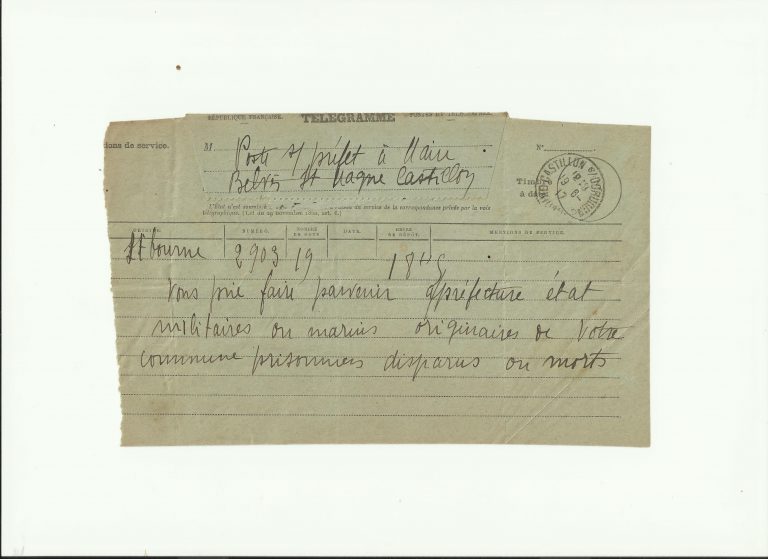 RÉPUBLIQUE FRANÇAISE. TÉLÉGRAMME POSTES ET TÉLÉGRAPHES.
ions de service.
M Poste s/ préfet à Maire
Belvès St Magne Castillon
N°
Timbre
à date
L'État n'est soumis à
du service de la correspondance privée par la voie
télégraphique. (Loi du 29 novembre 1850, art. 6.)
NUMÉRO. NOMBRE DE MOTS DATE. HEURE DE DÉPÔT. MENTIONS DE SERVICE.
Libourne 2903 19
Vous prie faire parvenir préfecture état
militaires ou marins originaires de votre
commune prisonniers disparus ou morts